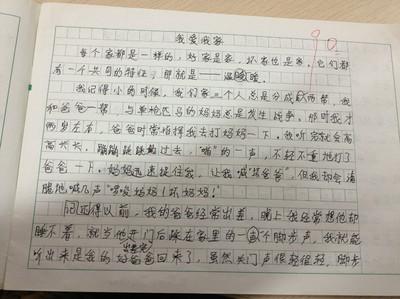 我爱我家
90
每个家都是一样的，好家是家，坏家也是家。它们都
有一个共同的特征，那就是——温暖。
我记得小的时候，我们家三个人总是分成两帮，我
和爸爸一帮，与单枪匹马的妈妈总是发生战争。那时我才
两岁左右，爸爸时常指挥我去打妈妈一下。我听完就会高
高兴兴，蹦蹦跳跳地过去，“啪”的一声，不轻不重地打了
爸爸一下。妈妈迅速捉住我，让我喊“坏爸爸”，但我却会清
脆地喊几声“妈妈！坏妈妈！”
记得以前，我的爸爸经常出差，晚上我经常想他却
睡不着，就当他开门后踩在家里的一个脚步声，我就能
听出来是我的好爸爸回来了，虽然关门声很轻很轻，脚步